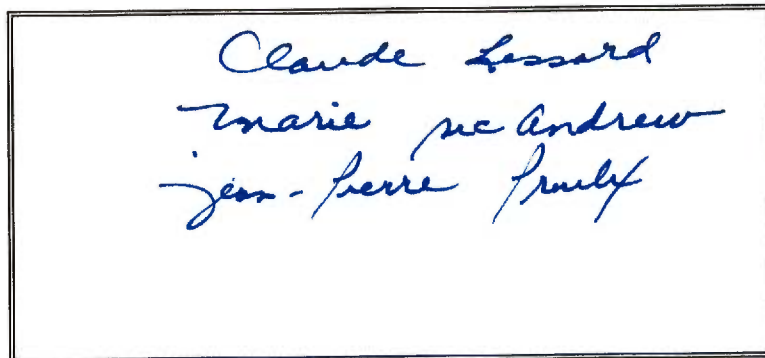 Claude Lessard
Marie Mc Andrew
Jean-Pierre Proulx